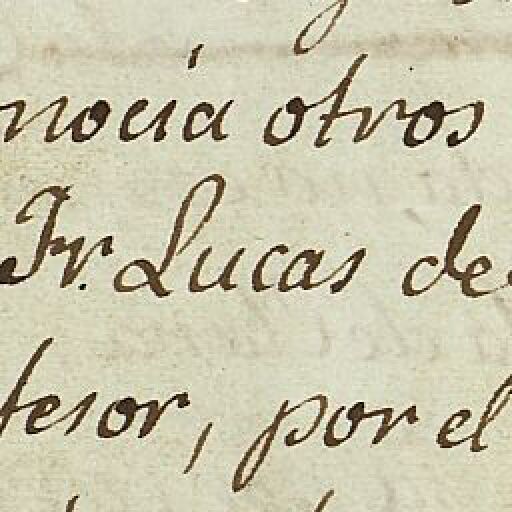 nocía otros
Fr. Lucas de
fesor, por el